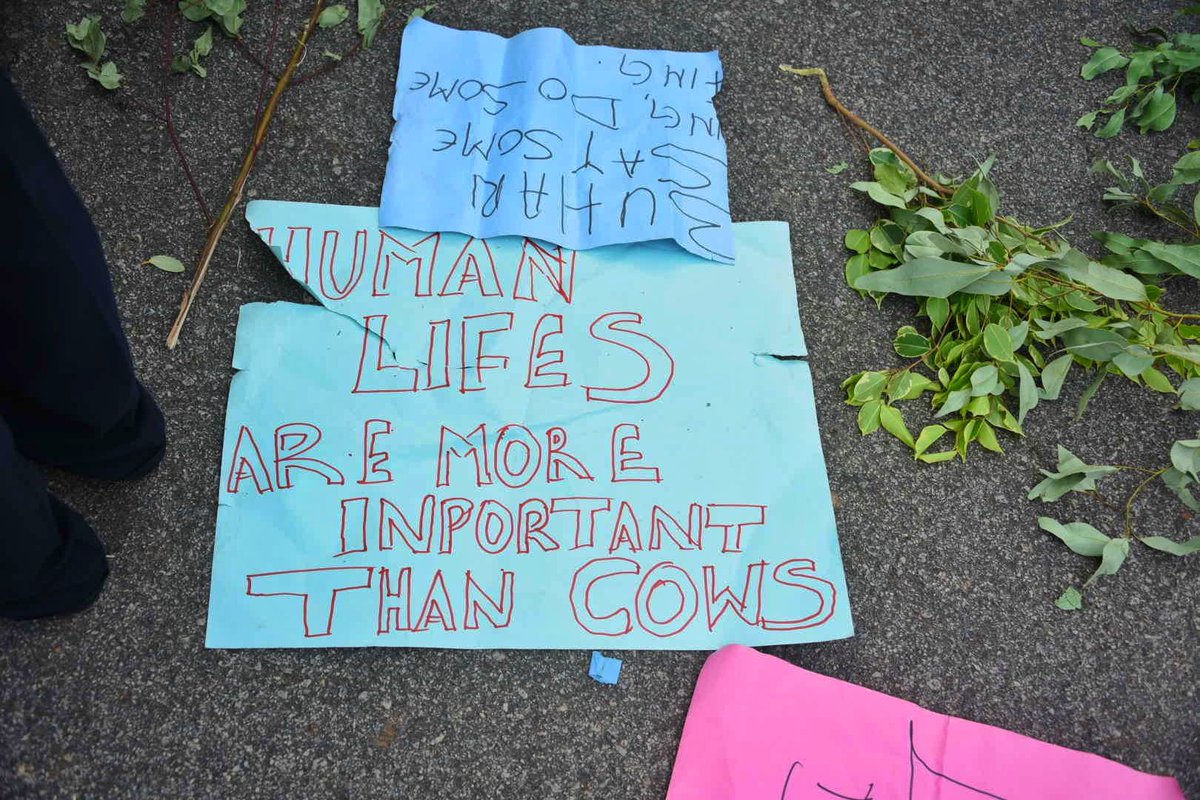 BUHARI
SAY SOME
ING, DO SOME
TING.
HUMAN
LIFES
ARE MORE
INPORTANT
THAN COWS